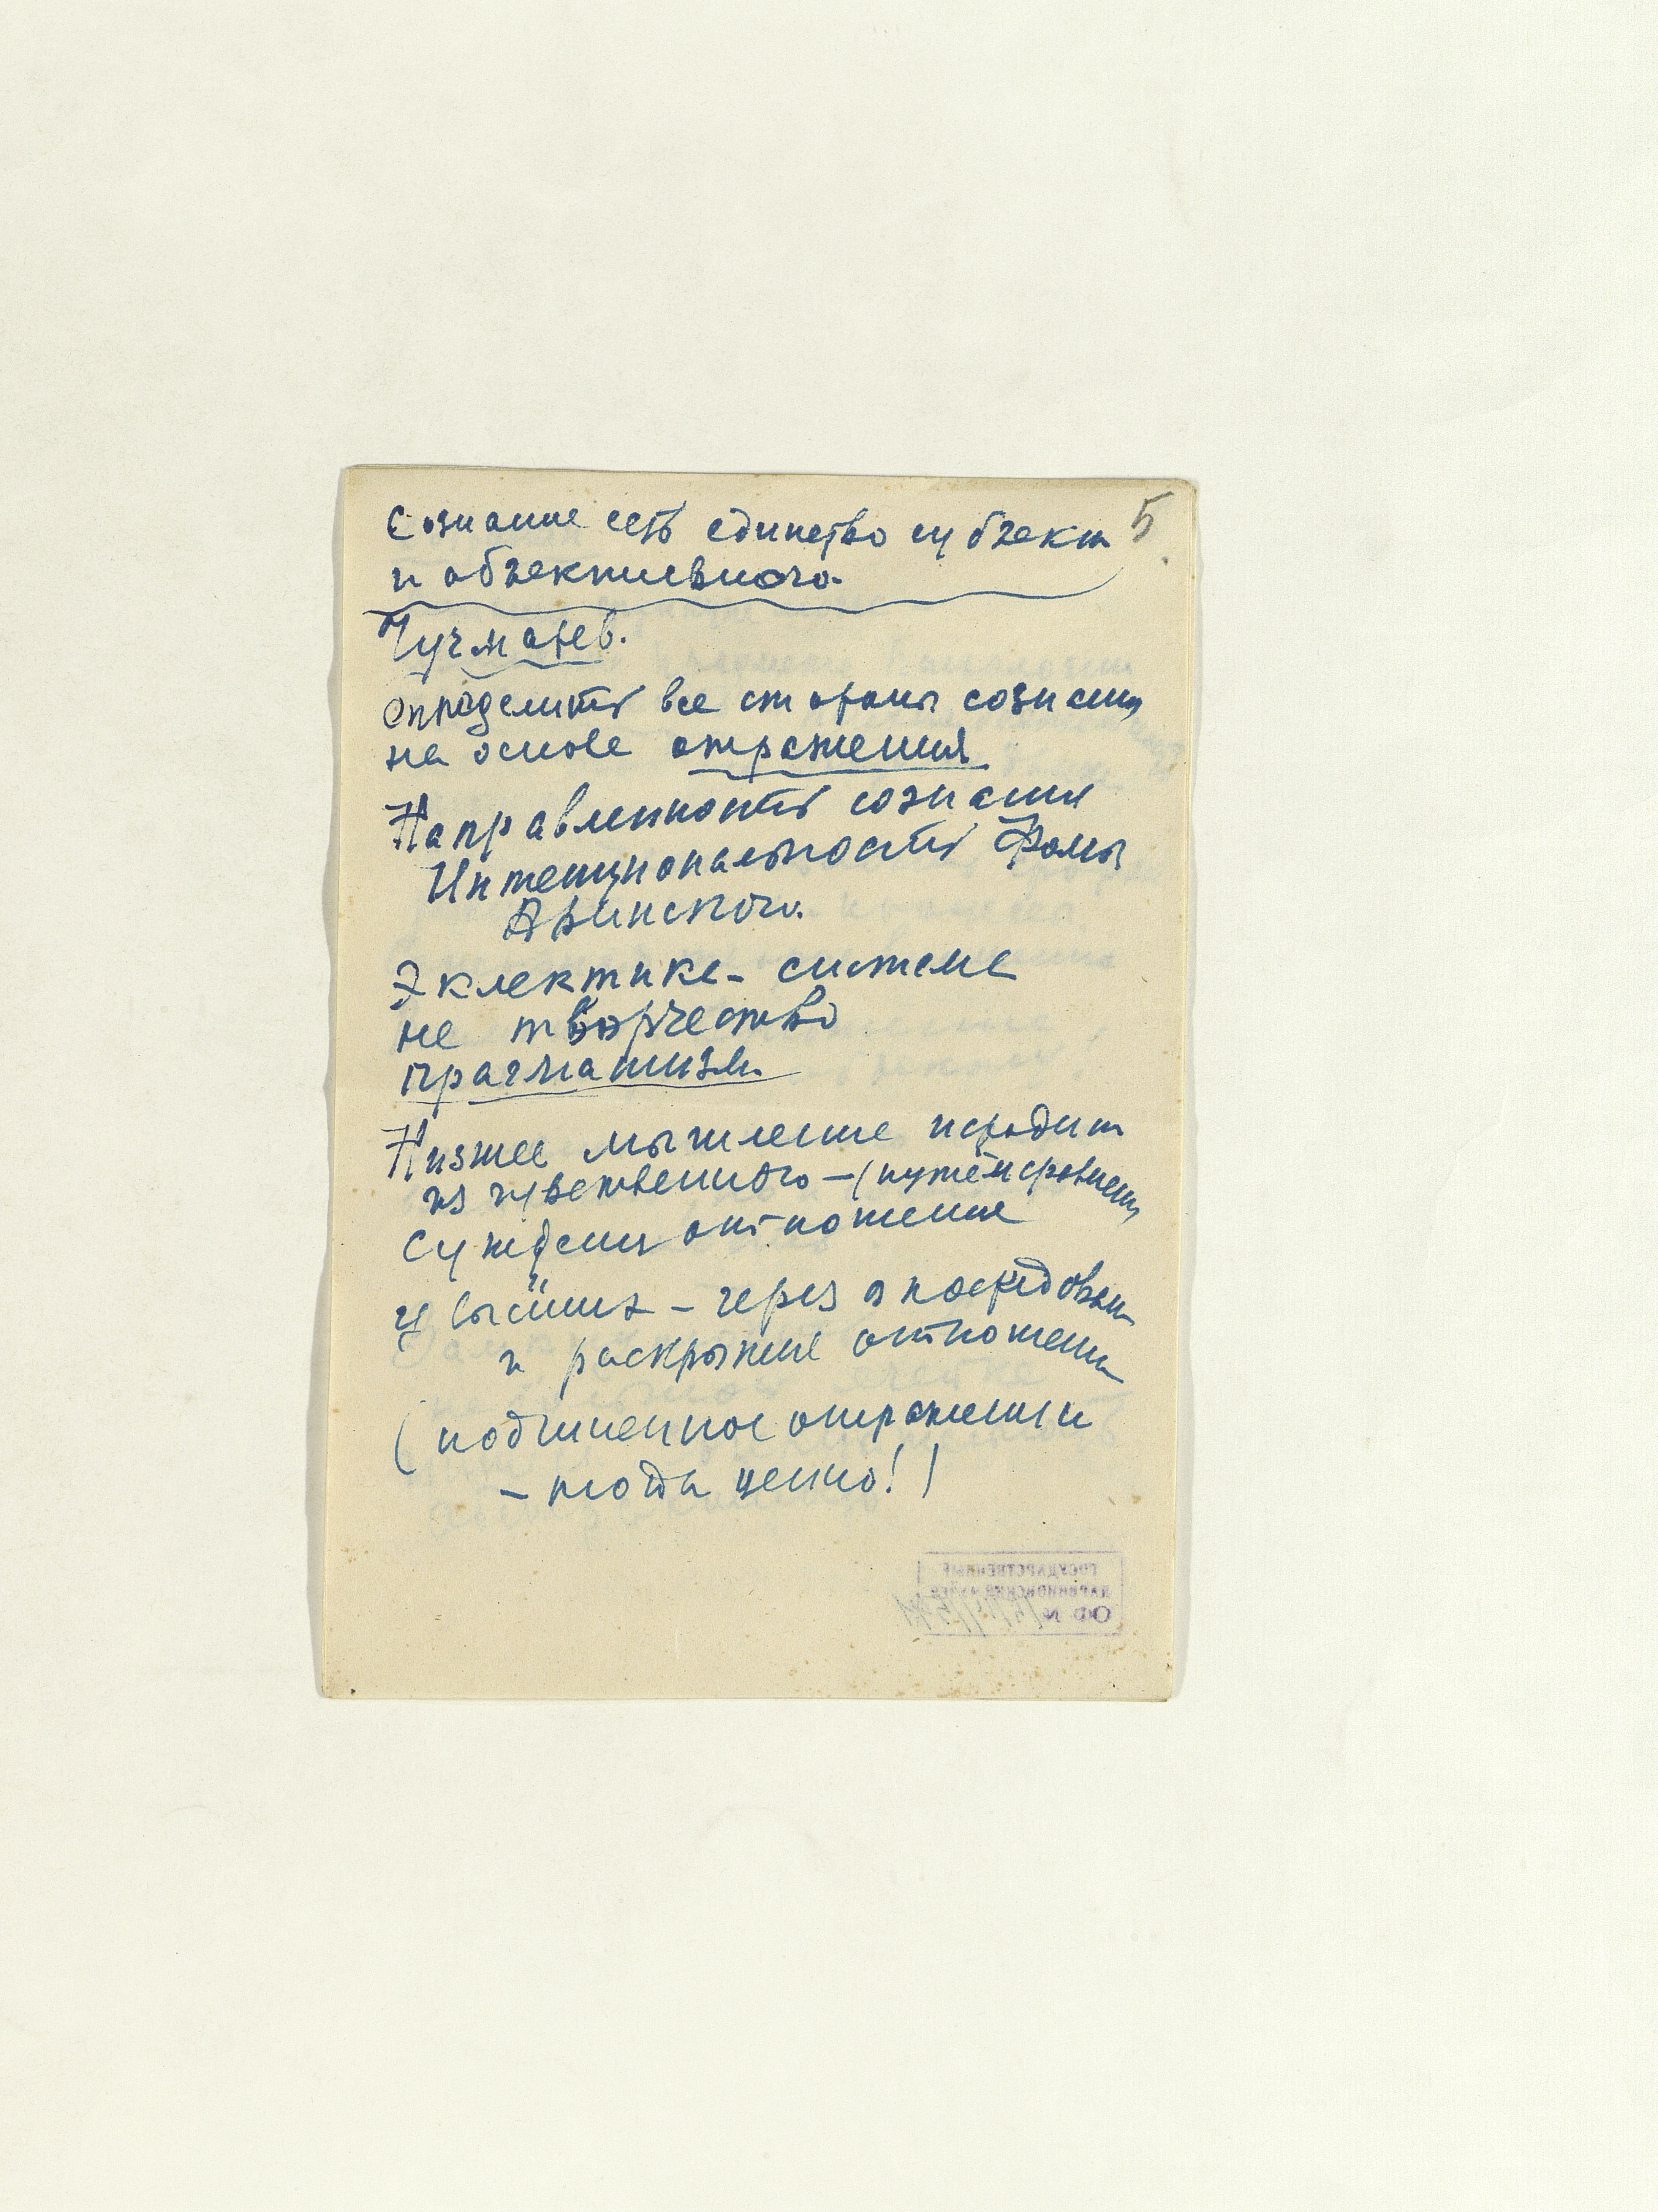 Сознание есть единство субъект 5
и объективного.
Чучмарев.
Определить все стороны сознания
на основе отражения
Направленность сознания
Интенциональность Фомы
Аквинского.
Эклектика - система
не творчество
прагматизм
Низшее мышление исходит
из чувственного – (путём сравнения
Суждения отношение
у высших – через опосредован
и раскрытие отношений
(подчиненное отражении
– тогда ценно!)
ГОСУДАРСТВЕННЫЙ
ДАРВИНОВСКИЙ МУЗЕЙ
ОФ №